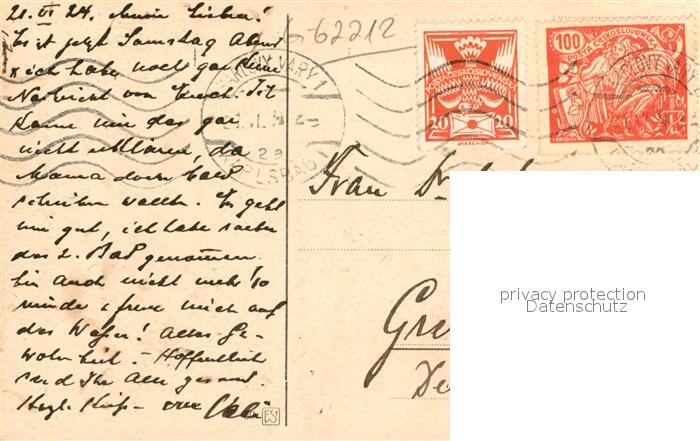 21. VI 24. Mein Lieber!
Es ist jetzt Samstag Abend
u. ich habe noch gar keine
Nachricht von Euch. Ich
kann mir das gar
nicht erklären, da
Mama doch bald
schreiben wollte. Es geht
mir gut, ich habe soeben
das 2. Bad genommen
bin auch nicht mehr so
müde u. freue mich auf
das Wasser! Alles Ge-
wohnheit. - Hoffentlich
seid Ihr Alle gesund.
Herzl. Kuss -
62212
KARLOVY VARY 1
KARLSBAD
20 ČESKOSLOVENSKÁ 20
100 POŠTA ČESKOSLOVENSKÁ
Frau Dr.
Gre
De
privacy protection
Datenschutz